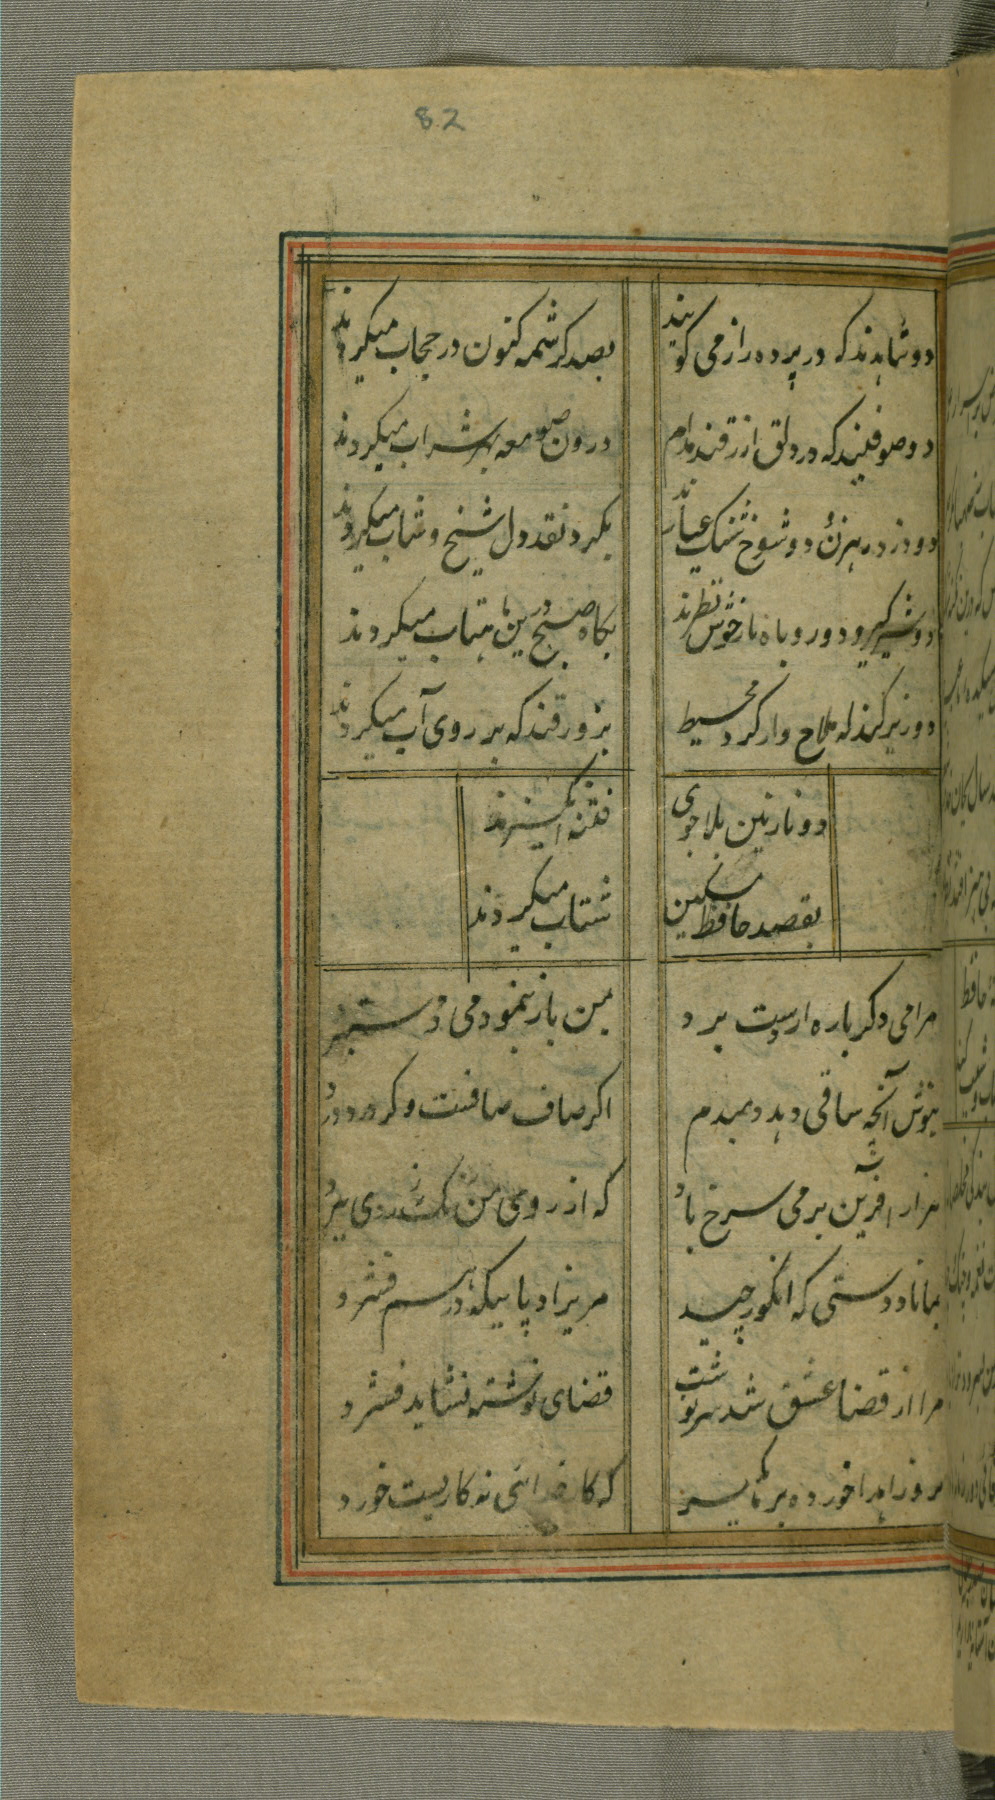 82
دو شاهدند که در پرده راز می کویند
بصد کرشمه کنون در حجاب میکردند
دو صوفیند که در دلق ازرقند مدام
درون صومعه شراب میکردند
دو دزد رهزن دو شوخ شنک عیارند
بکرد نقد دل شیخ و شاب میکردند
دو شیر کیر و دو روباه باز خوش نظرند
بکاه صبح درین میکردند
دو کرد محیط
بزورقند که بر روی آب میکردند
دو نازنین بلا جوی
فتنه انکیزند
بقصد حافظ مسکین
شتاب میکردند
مرا می دکر باره از دست برد
بمن باز بنمود می دستبرد
بنوش آنچه ساقی دهد دمبدم
اکر صاف صافست وکر درد درد
هزار آفرین بر می سرخ باد
که از روی من رنک زردی ببرد
بنازم دستی که انکور چید
مریزاد پاییکه در هم فشرد
مرا از قضا عشق شد سرنوشت
قضای نوشته نشاید سترد
برو زاهدا خورده بر ما مکیر
که کار خدائی نه کاریست خورد